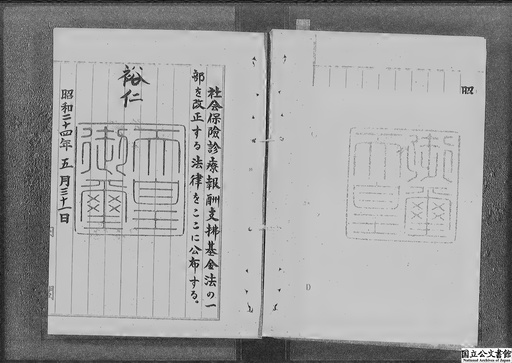 社会保険診療報酬支拂基金法の一
部を改正する法律をここに公布する。
裕仁
天皇
御璽
昭和二十四年五月三十一日
国立公文書館
National Archives of Japan